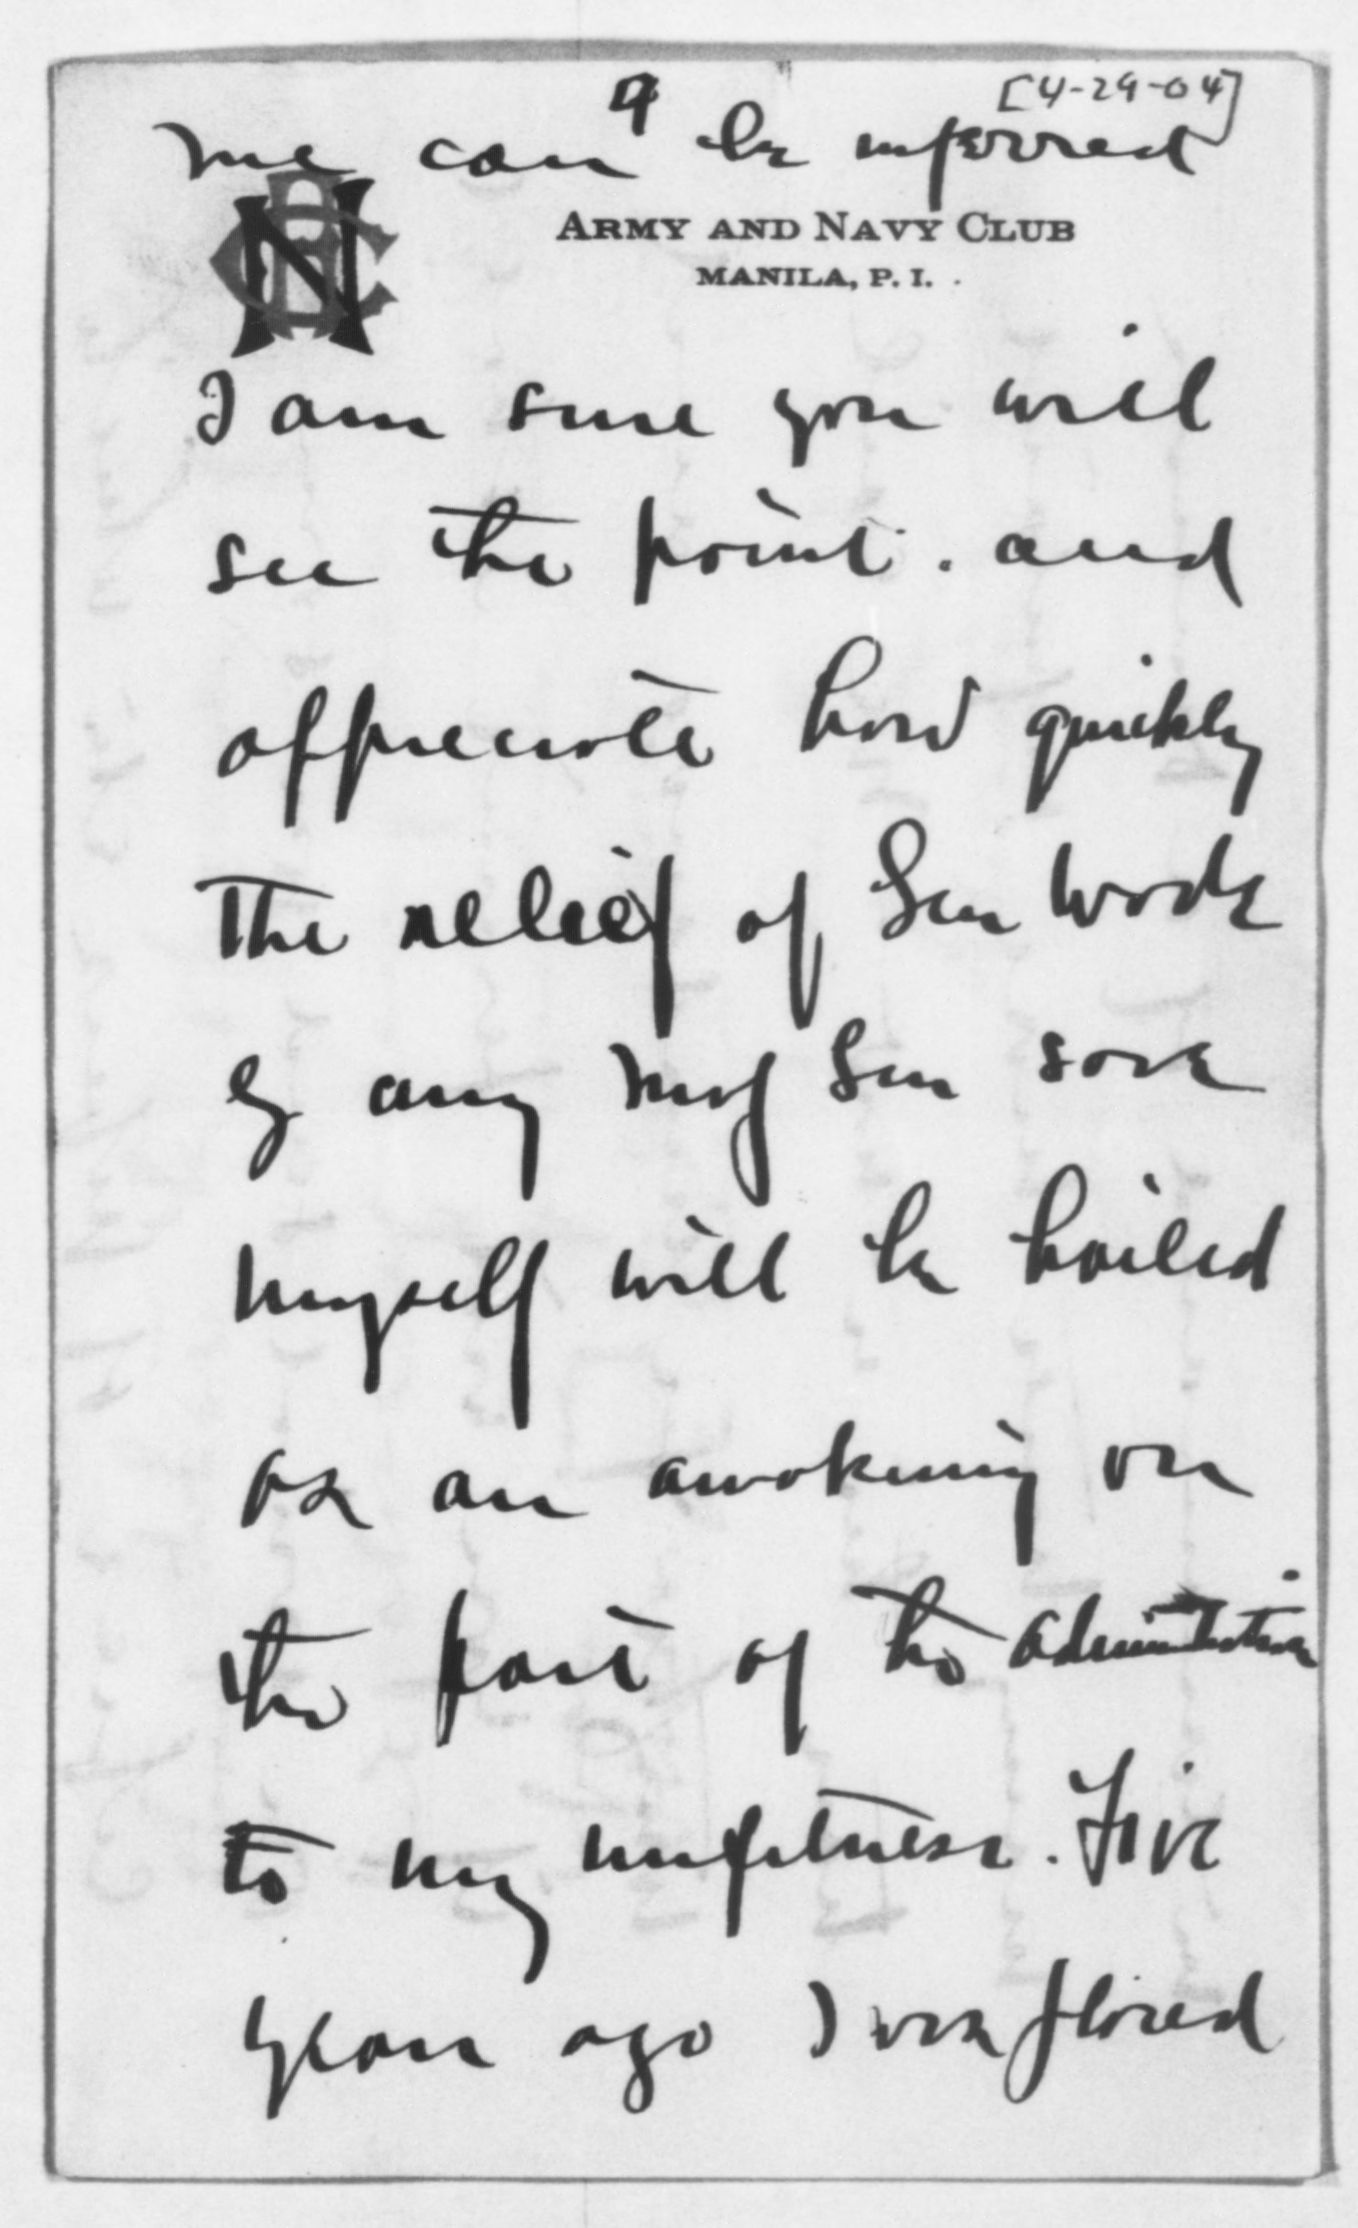 9
[4-29-04]
me can be inferred
ARMY AND NAVY CLUB
MANILA, P. I.
I am sure you will
see the point. and
appreciate how quickly
the relief of Gen Wood
by any Maj Gen save
myself will be hailed
as an awakening on
the part of the administration
to my unfitness. Five
years ago I was placed